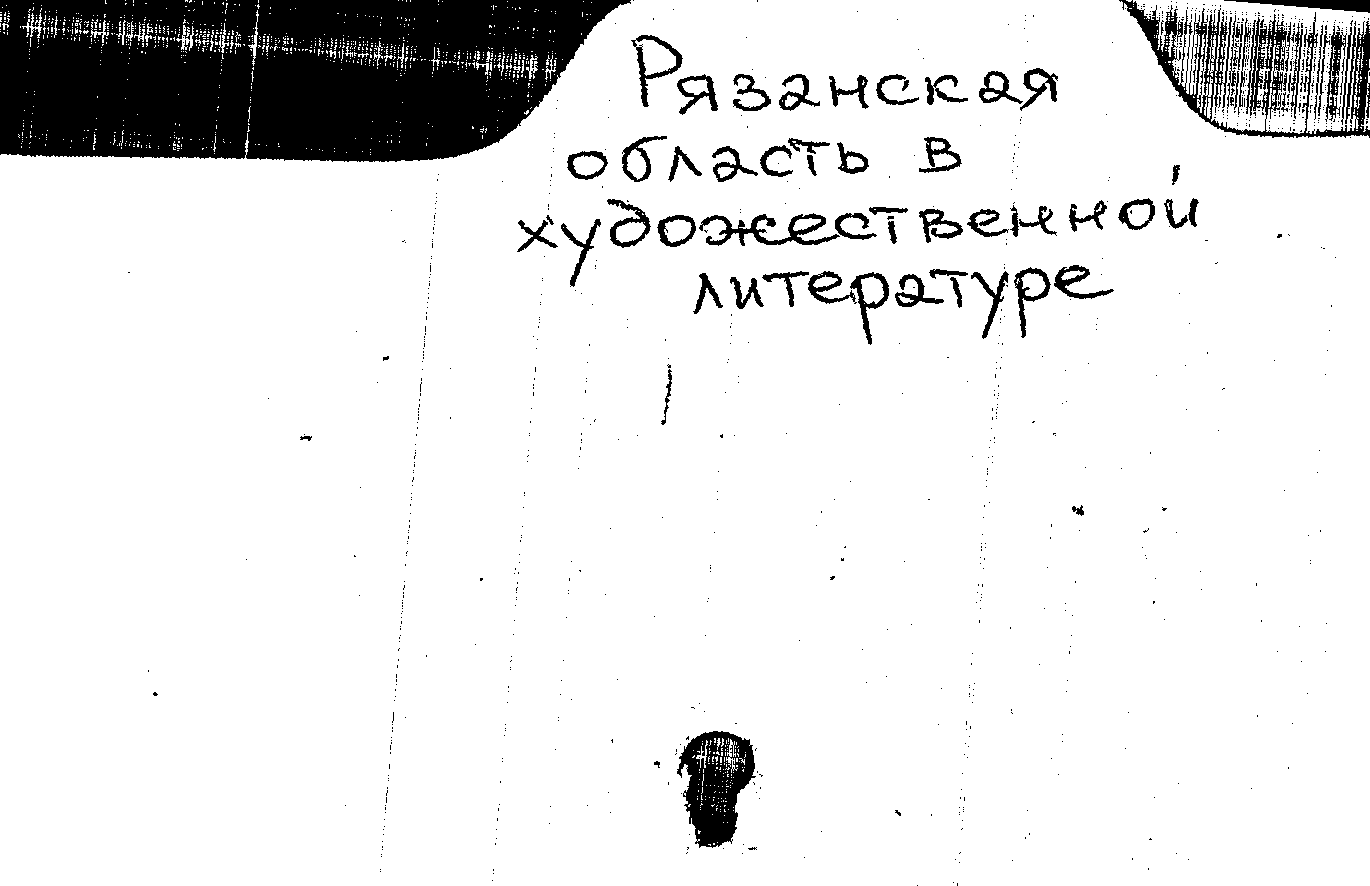 Рязанская
область в
художественной
литературе